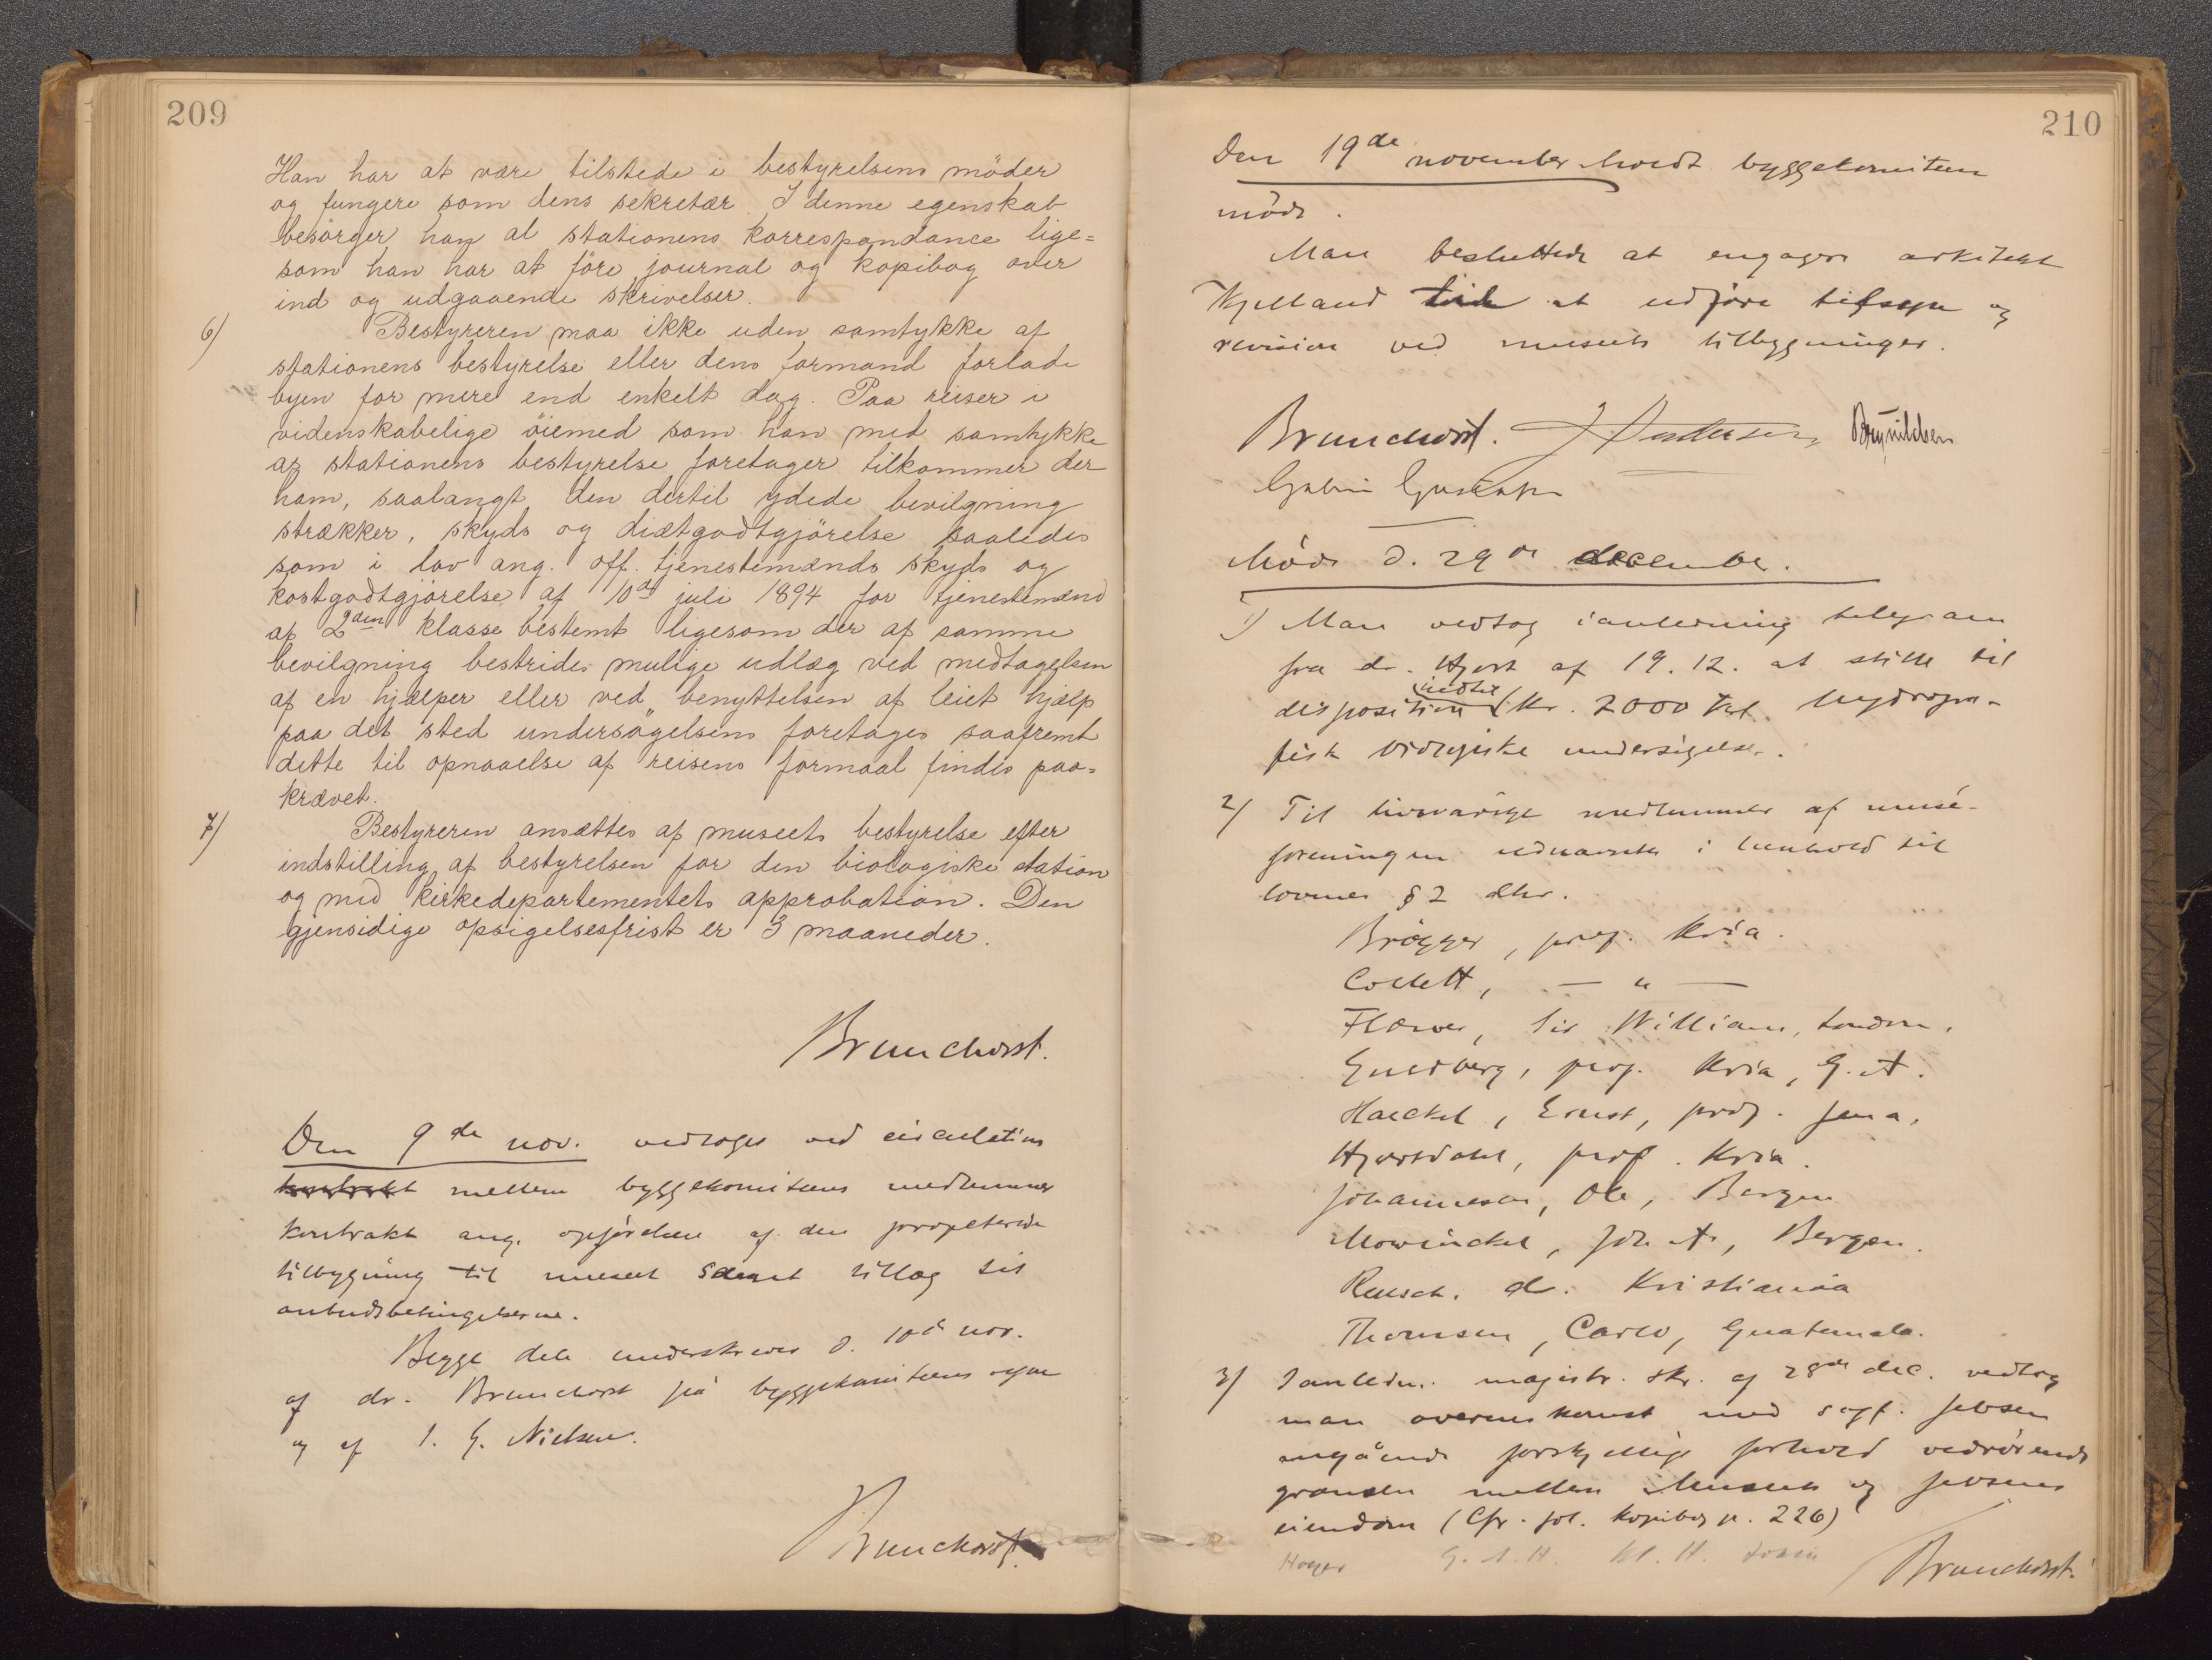 209
Han har at være tilstede i bestyrelsens möder
og fungere som dens sekretær. I denne egenskab
besörger han al stationens korrespondance lige=
som han har at före journal og kopibog over
ind og udgaaende skrivelser.
6) Bestyreren maa ikke uden samtykke af
stationens bestyrelse eller dens formand forlade
byen for mere end enkelt dag. Paa reiser i
videnskabelige öiemed som han med samtykke
af stationens bestyrelse foretager tilkommer der
ham, saalangt den dertil ydede bevilgning
strækker, skyds og diætgodtgjörelse saaledes
som i lov ang. off. tjenestemænds skyds og
kostgodtgjörelse af 10de juli 1894 for tjenestemænd
af 2den klasse bestemt ligesom der af samme
bevilgning bestrides mulige udlæg ved medtagelsen
af en hjælper eller ved benyttelsen af leiet hjælp
paa det sted undersögelsens foretages saafremt
dette til opnaaelse af reisens formaal findes paa=
krævet.
7) Bestyreren ansættes af museets bestyrelse efter
indstilling af bestyrelsen for den biologiske station
og med kirkedepartementets approbation. Den
gjensidige opsigelsesfrist er 3 maaneder.
Brunchorst.
Den 9de nov. vedtoges ved cirkulation
kontrakt mellem byggekomiteens medlemmer
kontrakt ang. opförelsen af den projekterede
tilbygning til museet samt tillæg til
anbudsbetingelserne.
Begge dele underskrives d. 10de nov.
af dr. Brunchorst på byggekomiteens vegne
og af I. G. Nielsen.
Brunchorst.
210
Den 19de november holdt byggekomiteen
möde.
Man besluttede at engagere arkitekt
Kjelland til at udföre tilsyn og
revision ved museets tilbygninger.
Brunchorst. J Pedersen Brynildsen
Gabriel Gustafson
Möde d. 29de december.
1) Man vedtog i anledning telegram
fra dr. Hjort af 19.12. at stille til
disposition indtil Kr. 2000 til hydrogra-
fisk biologiske undersögelser.
2) Til livsvarige medlemmer af musé-
foreningen udnævntes i henhold til
lovenes § 2 dhr.
Brögger, prof. Kria.
Collett, — " —
Flower, Sir William, London.
Guldberg, prof. Kria, G. A.
Haeckel, Ernst, prof. Jena.
Hjortdahl, prof. Kria.
Johannesen, Ole, Bergen
Mowinckel, Joh. A., Bergen.
Reusch. dr. Kristiania
Thomsen, Carlo, Guatemala.
3) I anledn. magistr. skr. af 28de dec. vedtog
man overenskomst med sagf. Jebsen
angående forskjellige forhold vedrörende
grænsen mellem Museets og Jebsens
eiendom (Cfr. fol. kopibog p. 226)
G. A. H.
Brunchorst.